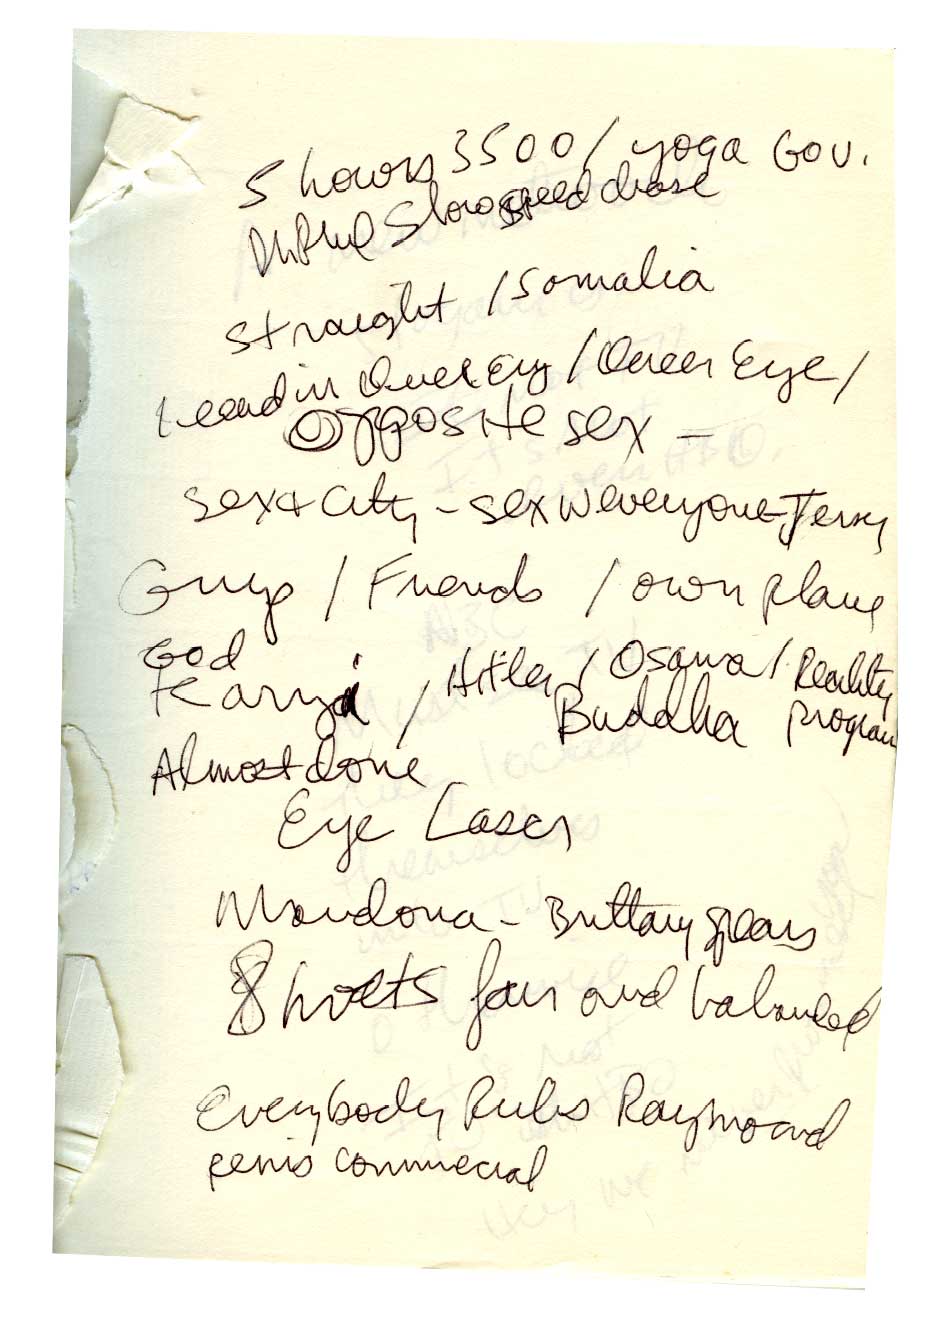 5 hours 3500 / yoga Gov.
Slow speed chase
straight / Somalia
Lead in Queer Eye / Queer Eye /
Opposite sex —
Sex & City - sex w everyone - Jersey
Guys / Friends / own plane
God
/ Hitler / Osama / Reality
Buddha program
Almost done
Eye Laser
Mandona - Brittany Spears
8 hots fair and balanced
Everybody Rubs Raymond
penis commercial